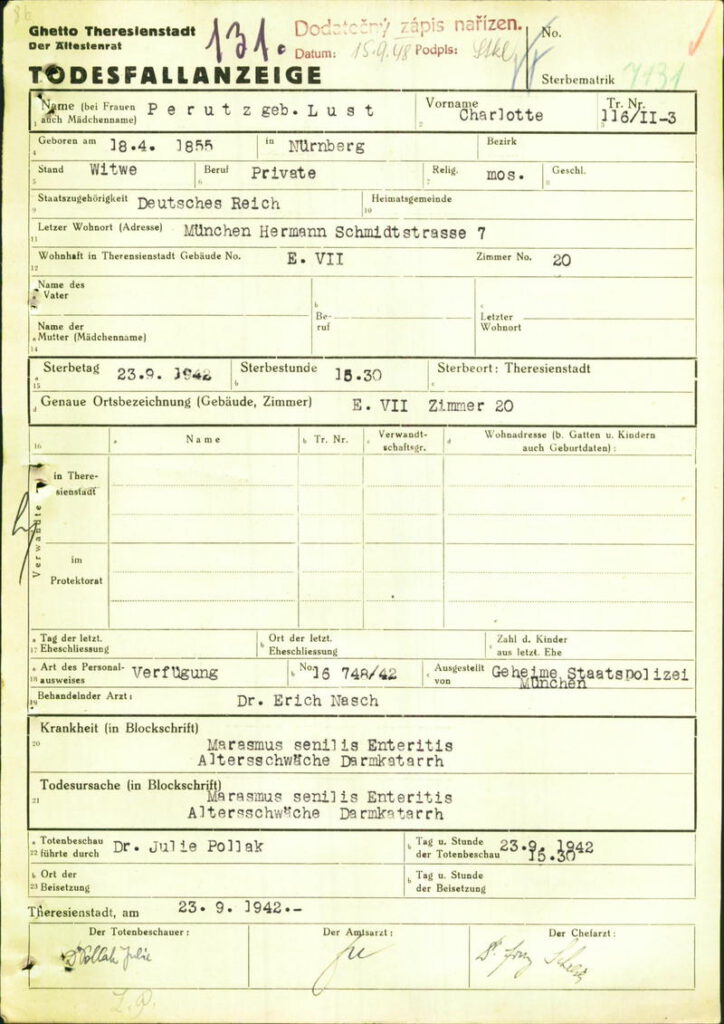 Ghetto Theresienstadt
Der Ältestenrat
131.
Dodatečný zápis nařízen.
Datum: 15.9.48 Podpis:
No.
TODESFALLANZEIGE
Sterbematrik 7131
1 Name (bei Frauen auch Mädchenname) Perutz geb. Lust
2 Vorname Charlotte
3 Tr. Nr. 116/II-3
4 Geboren am 18.4. 1855 in Nürnberg Bezirk
5 Stand Witwe 6 Beruf Private 7 Relig. mos. 8 Geschl.
9 Staatszugehörigkeit Deutsches Reich 10 Heimatsgemeinde
11 Letzer Wohnort (Adresse) München Hermann Schmidtstrasse 7
12 Wohnhaft in Therensienstadt Gebäude No. E. VII Zimmer No. 20
a Name des Vater
b Beruf
c Letzter Wohnort
a Name der Mutter (Mädchenname)
14
a Sterbetag 23.9. 1942 b Sterbestunde 15.30 c Sterbeort: Theresienstadt
15
d Genaue Ortsbezeichnung (Gebäude, Zimmer) E. VII Zimmer 20
16 a Name b Tr. Nr. c Verwandtschaftsgr. d Wohnadresse (b. Gatten u. Kindern auch Geburtdaten) :
Verwandte
in Theresienstadt
im Protektorat
17 a Tag der letzt. Eheschliessung b Ort der letzt. Eheschliessung c Zahl d. Kinder aus letzt. Ehe
18 a Art des Personalausweises Verfügung b No. 16 748/42 c Ausgestellt von Geheime Staatspolizei München
19 Behandelnder Arzt: Dr. Erich Nasch
20 Krankheit (in Blockschrift)
Marasmus senilis Enteritis
Altersschwäche Darmkatarrh
21 Todesursache (in Blockschrift)
Marasmus senilis Enteritis
Altersschwäche Darmkatarrh
22 a Totenbeschau führte durch Dr. Julie Pollak b Tag u. Stunde der Totenbeschau 23.9. 1942 15.30
23 a Ort der Beisetzung b Tag u. Stunde der Beisetzung
Theresienstadt, am 23. 9. 1942.-
Der Totenbeschauer: Der Amtsarzt: Der Chefarzt:
Dr Pollak Julie